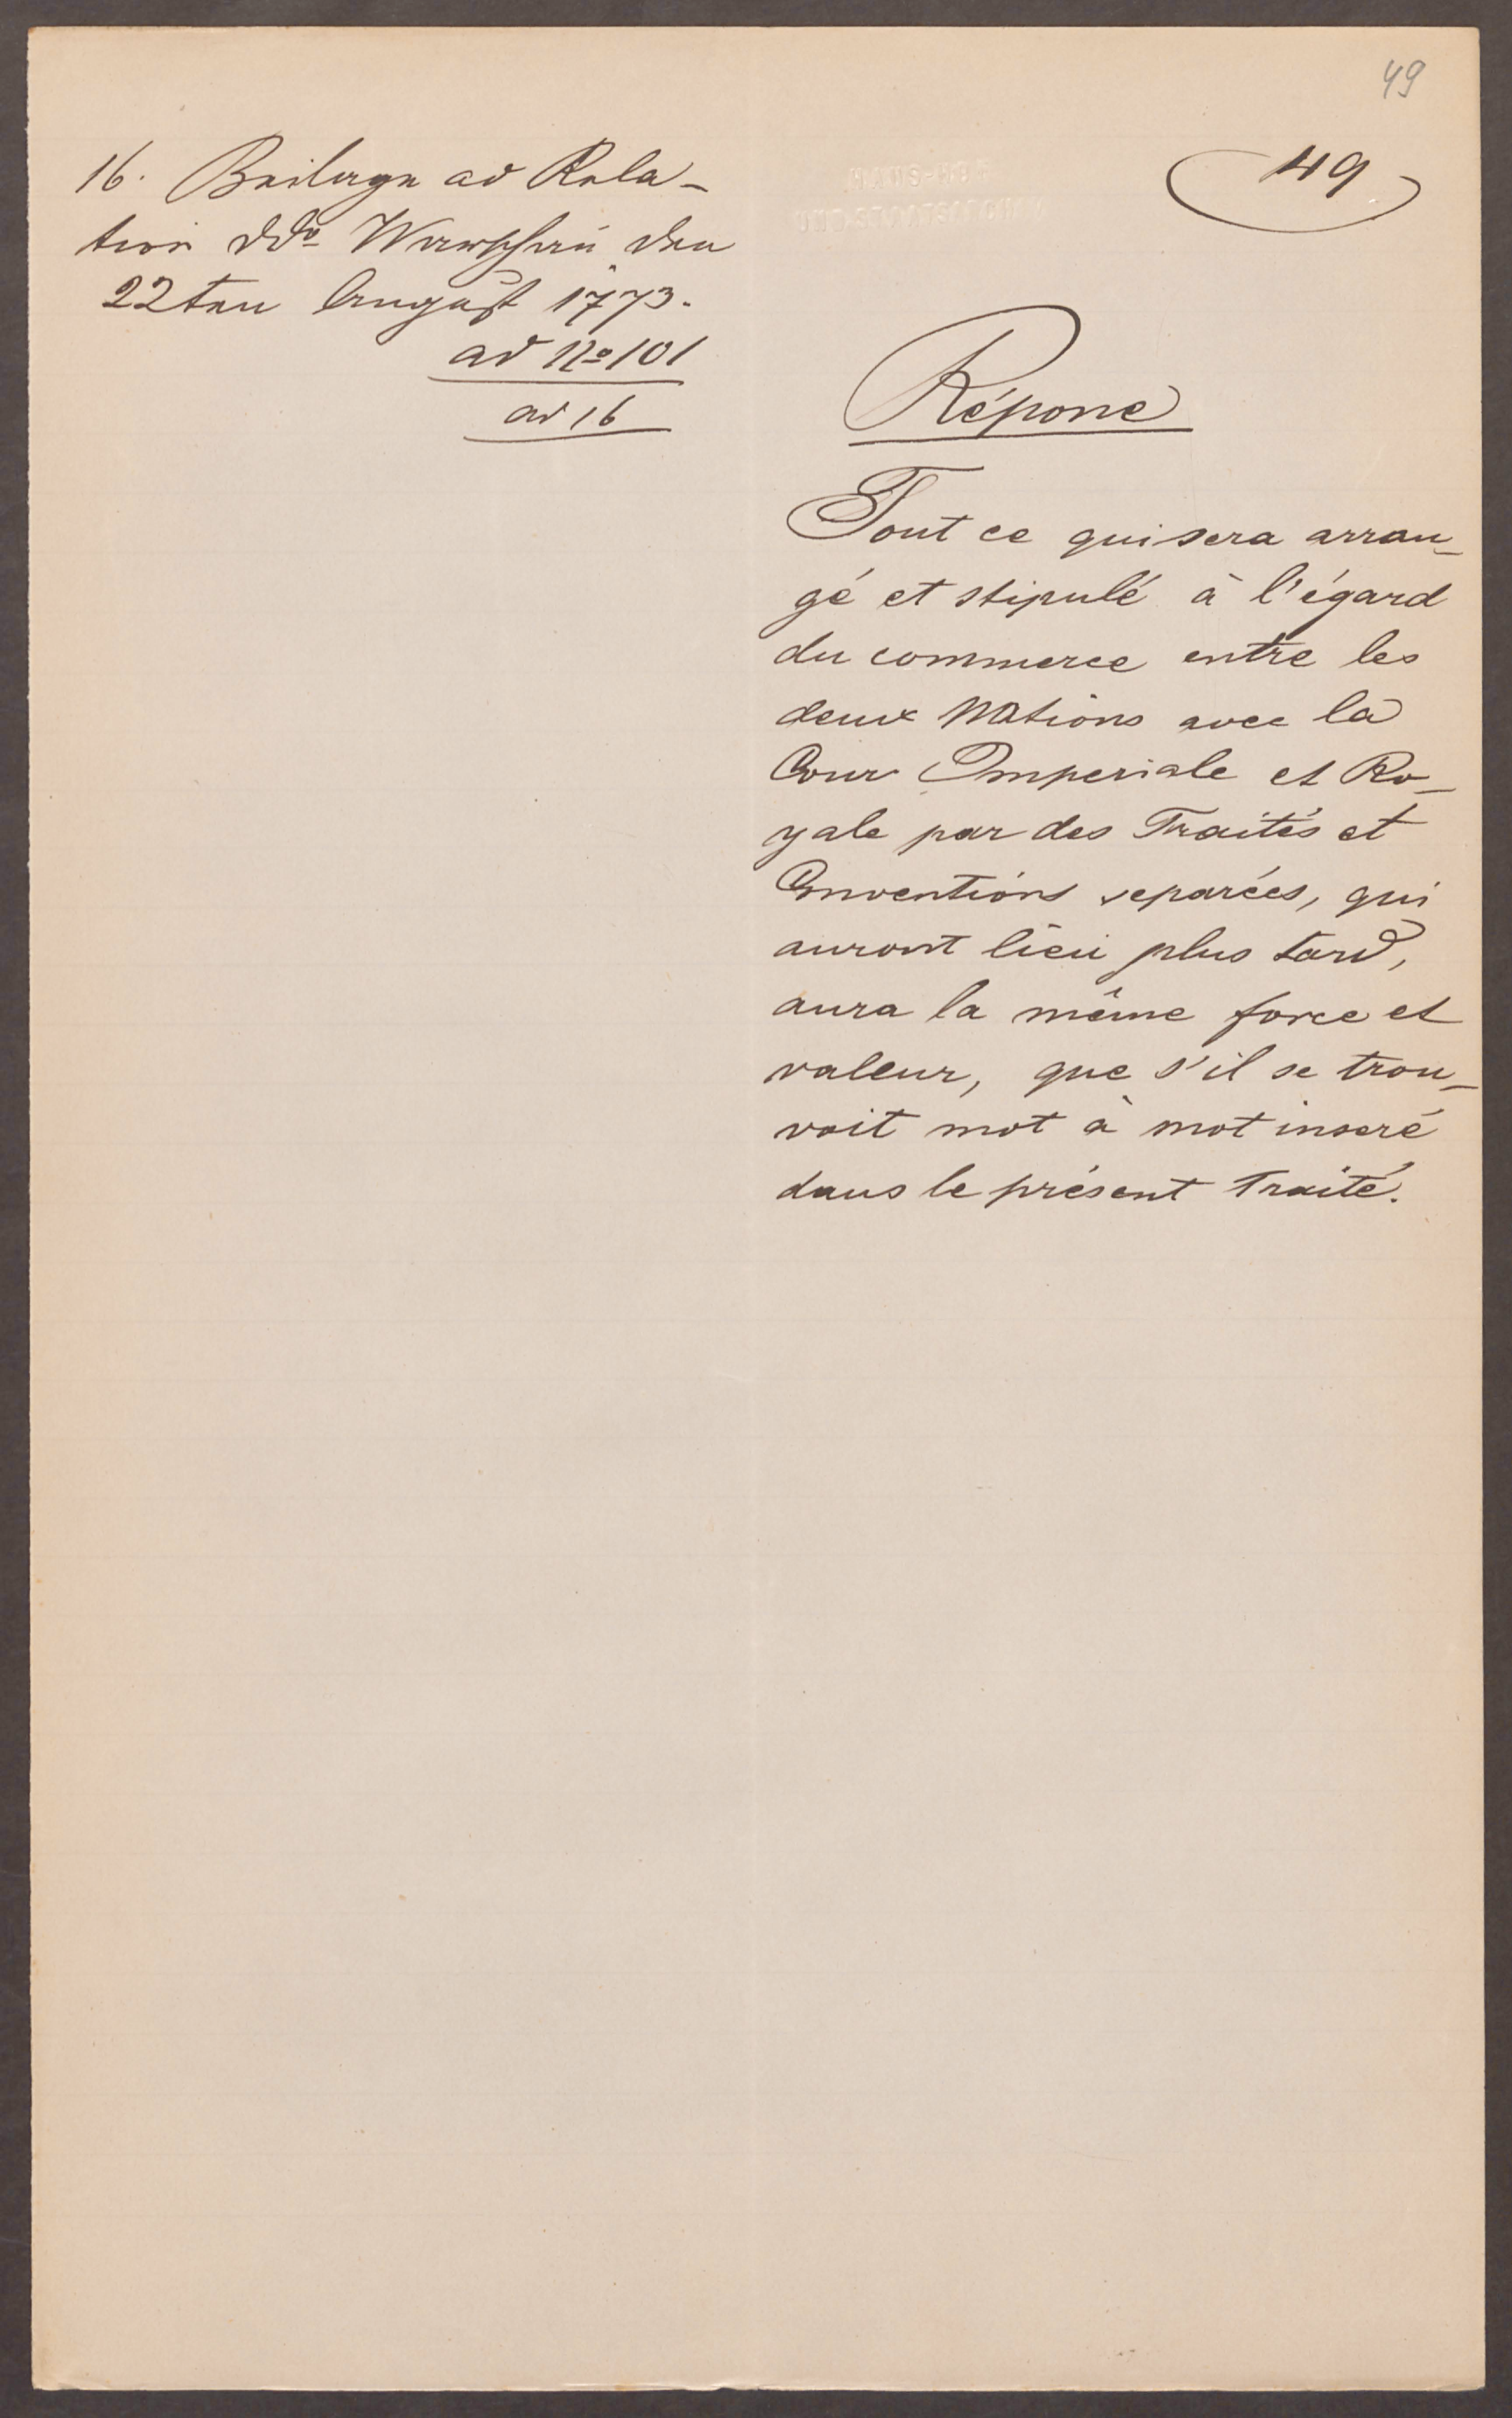 49
49
16. Beilage ad Rela-
tion ddo Warschau den
22ten August 1773.
ad No 101
ad 16
Réponse
Tout ce qui sera arran-
gé et stipulé à l'égard
du commerce entre les
deux Nations avec la
Cour Imperiale et Ro-
yale par des Traités et
Conventions separées, qui
auront lieu plus tard,
aura la même force et
valeur, que s'il se trou-
voit mot à mot inseré
dans le présent Traité.